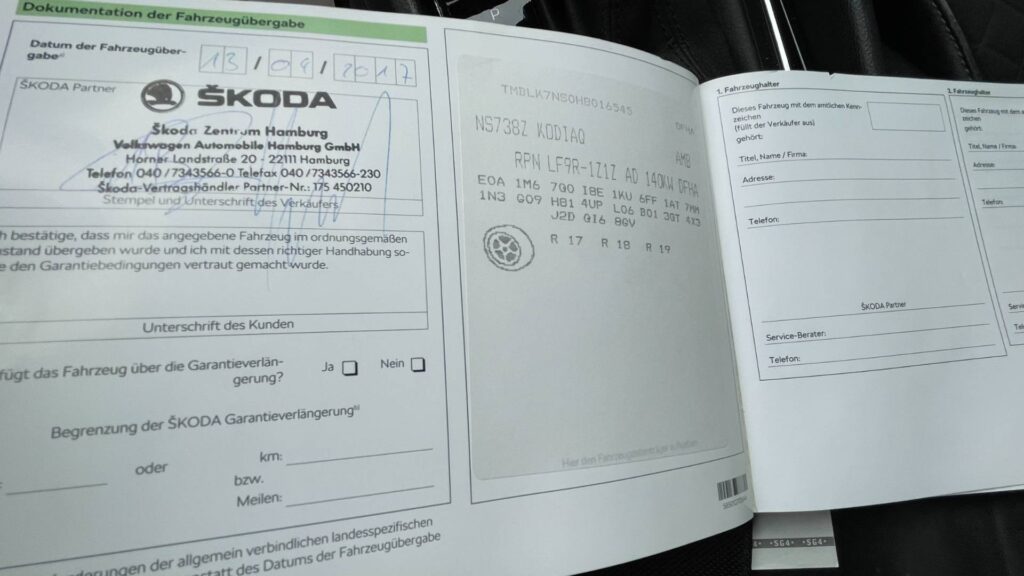 Dokumentation der Fahrzeugübergabe
Datum der Fahrzeugüber-
gabe
13 / 09 / 2017
ŠKODA Partner
ŠKODA
Škoda Zentrum Hamburg
Volkswagen Automobile Hamburg GmbH
Horner Landstraße 20 - 22111 Hamburg
Telefon 040 / 7343566-0 Telefax 040 / 7343566-230
Škoda-Vertragshändler Partner-Nr.: 175 450210
Stempel und Unterschrift des Verkäufers
bestätige, dass mir das angegebene Fahrzeug im ordnungsgemäßen
ustand übergeben wurde und ich mit dessen richtiger Handhabung so-
e den Garantiebedingungen vertraut gemacht wurde.
Unterschrift des Kunden
fügt das Fahrzeug über die Garantieverlän-
gerung?
Ja
Nein
Begrenzung der ŠKODA Garantieverlängerung
oder
km:
bzw.
Meilen:
derungen der allgemein verbindlichen landesspezifischen
statt des Datums der Fahrzeugübergabe
P
TMBLK7NS0H8016545
NS738Z KODIAQ
DFHA
AMB
RPN LF9R-1Z1Z AD 140KW DFHA
E0A 1M6 7Q0 I8E 1KU 6FF 1AT 7MM
1N3 G09 HB1 4UP L06 B01 3GT 4X3
J2D QI6 8GV
R 17 R 18 R 19
Hier den Fahrzeugdatenträger aufkleben
1. Fahrzeughalter
Dieses Fahrzeug mit dem amtlichen Kenn-
zeichen
(füllt der Verkäufer aus)
gehört:
Titel, Name / Firma:
Adresse:
Telefon:
ŠKODA Partner
Service-Berater:
Telefon:
Fahrzeughalter
Dieses Fahrzeug mit dem
zeichen
(füllt der Verkäufer aus)
gehört:
Titel, Name / Firma:
Adresse:
Telefon:
Telefon:
SG4 SG4